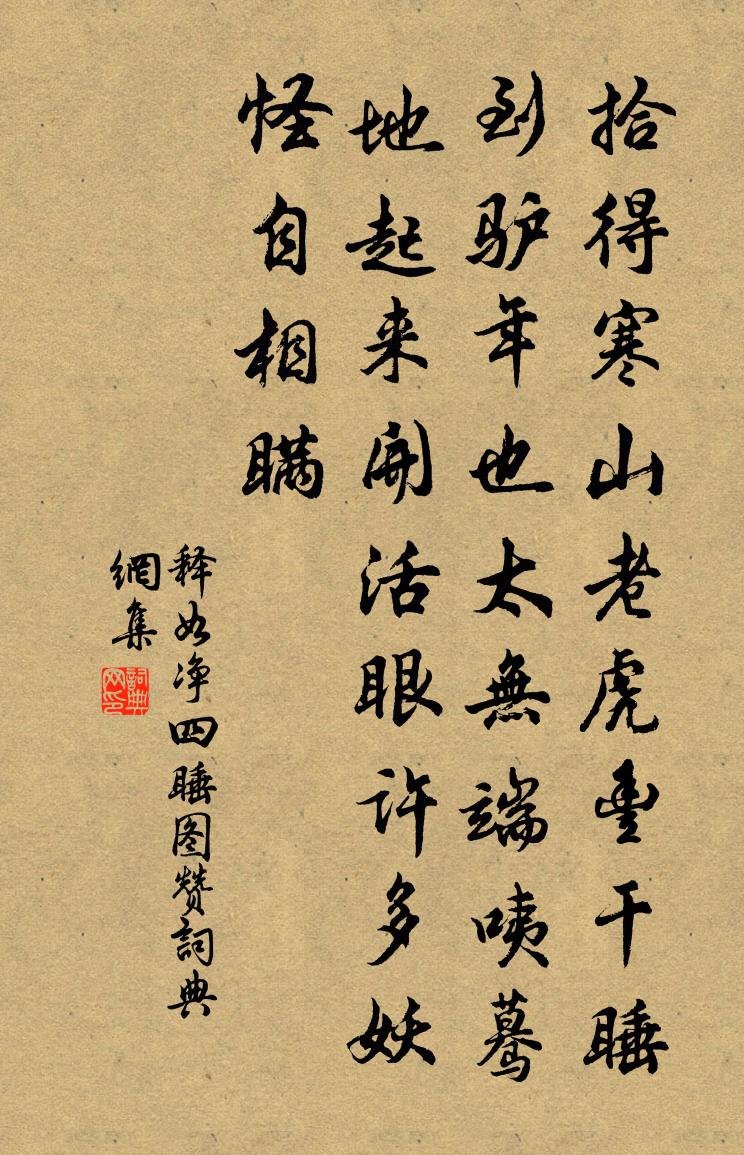 拾得寒山老虎豊干睡
到驴年也太無端咦驀
地起来開活眼許多妖
怪自相瞞
释如净四睡图赞詞典
網集
詞典网印